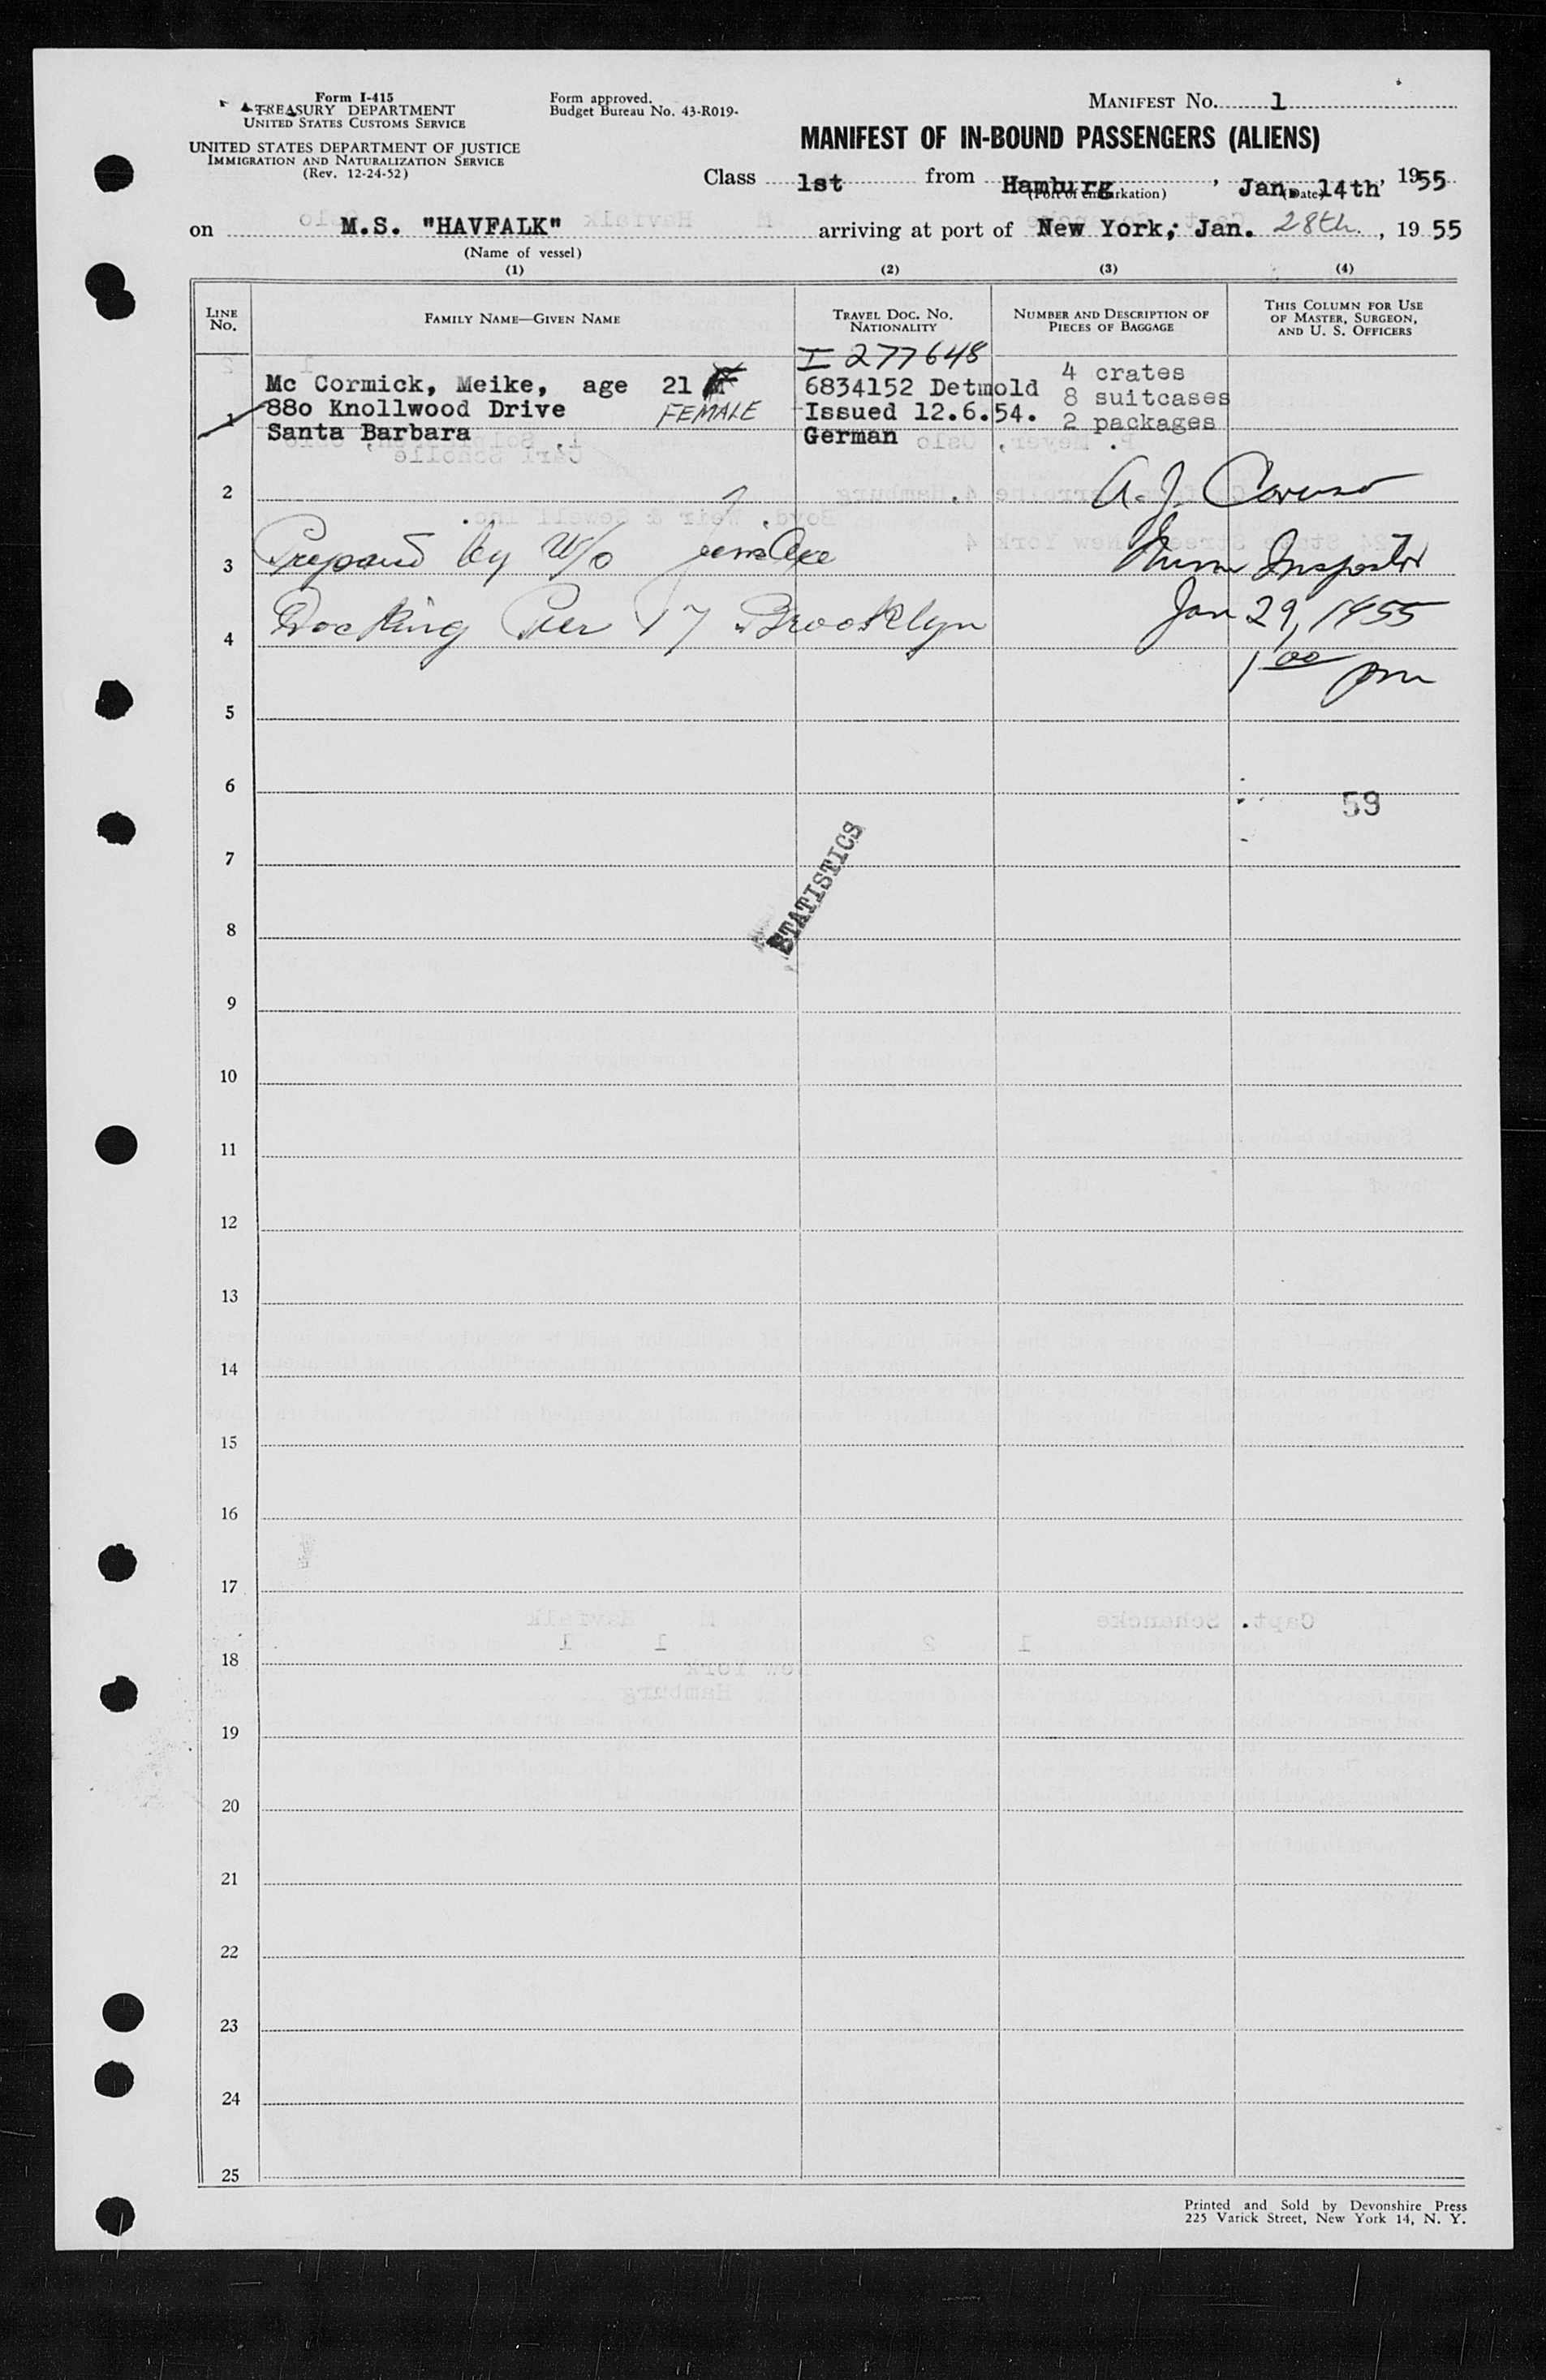 Form I-415
TREASURY DEPARTMENT
UNITED STATES CUSTOMS SERVICE
UNITED STATES DEPARTMENT OF JUSTICE
IMMIGRATION AND NATURALIZATION SERVICE
(Rev. 12-24-52)
Form approved.
Budget Bureau No. 43-R019-
MANIFEST NO. 1
MANIFEST OF IN-BOUND PASSENGERS (ALIENS)
Class 1st from Hamburg, Jan. 14th, 1955
(Port of embarkation) (Date)
on M.S. "HAVFALK" arriving at port of New York, Jan. 28th, 1955
(Name of vessel)
(1) (2) (3) (4)
LINE No.
FAMILY NAME—GIVEN NAME
TRAVEL DOC. NO. NATIONALITY
NUMBER AND DESCRIPTION OF PIECES OF BAGGAGE
THIS COLUMN FOR USE OF MASTER, SURGEON, AND U. S. OFFICERS
I 277648
Mc Cormick, Meike, age 21 F 6834152 Detmold 4 crates
1 880 Knollwood Drive FEMALE Issued 12.6.54. 8 suitcases
Santa Barbara German 2 packages
2 A. J. Caruso
3 Prepared by W/o Immun Inspector
4 Docking Pier 17 Brooklyn Jan 29, 1955
1 00 pm
5
6
59
7
STATISTICS
8
9
10
11
12
13
14
15
16
17
18
19
20
21
22
23
24
25
Printed and Sold by Devonshire Press
225 Varick Street, New York 14, N. Y.